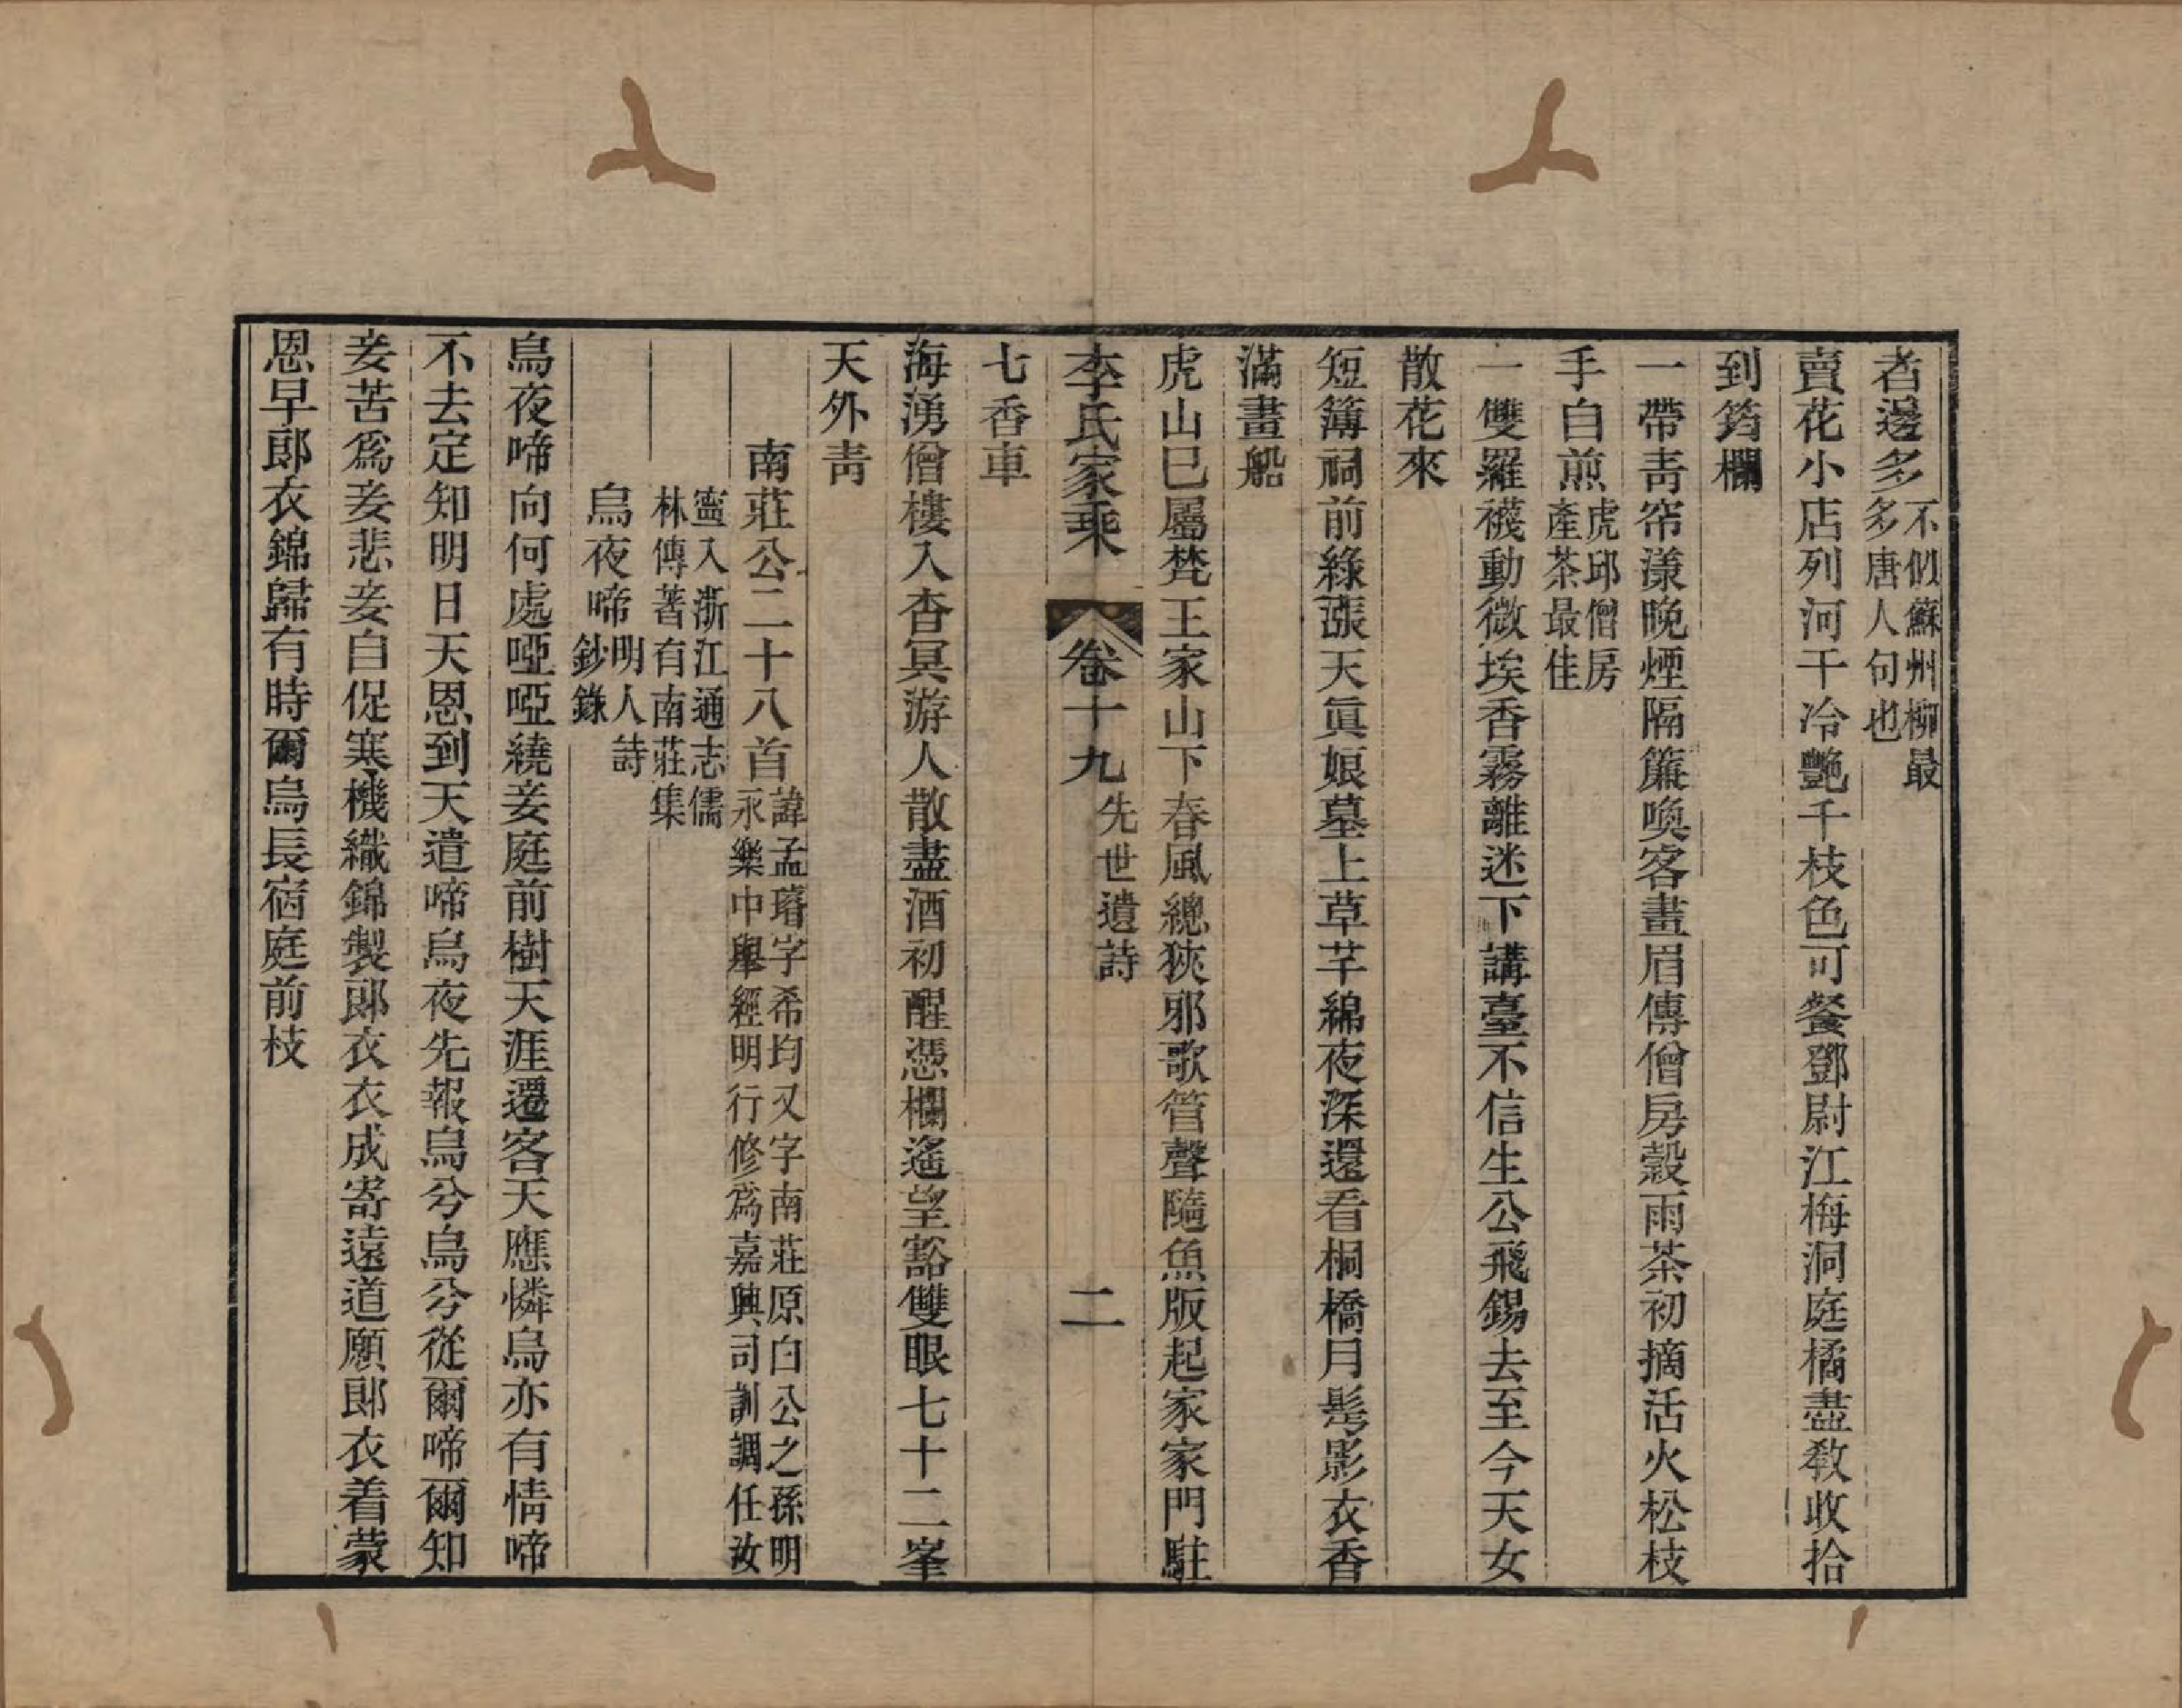 者邊多不似蘇州柳最多唐人句也
賣花小店列河干冷艷千枝色可餐鄧尉江梅洞庭橘盡敎收拾
到筠欄
一帶靑帘漾晚煙隔簾喚客畫眉傳僧房穀雨茶初摘活火松枝
手自煎虎邱僧房產茶最佳
一雙羅襪動微埃香霧離迷下講臺不信生公飛錫去至今天女
散花來
短簿祠前綠漲天眞娘墓上草芊綿夜深還看桐橋月髩影衣香
滿畫船
虎山已屬梵王家山下春風總狹邪歌管聲隨魚版起家家門駐
李氏家乘 卷十九 先世遺詩 二
七香車
海湧僧樓入杳冥游人散盡酒初醒憑欄遙望豁雙眼七十二峯
天外靑
南莊公二十八首諱孟璿字希均又字南莊原白公之孫明永樂中舉經明行修爲嘉興司訓調任汝
寧入浙江通志儒林傳著有南莊集
烏夜啼明人詩鈔錄
烏夜啼向何處啞啞繞妾庭前樹天涯遷客天應憐烏亦有情啼
不去定知明日天恩到天遣啼烏夜先報烏兮烏兮從爾啼爾知
妾苦爲妾悲妾自促寒機織錦製郞衣衣成寄遠道願郞衣着蒙
恩早郎衣錦歸有時爾烏長宿庭前枝